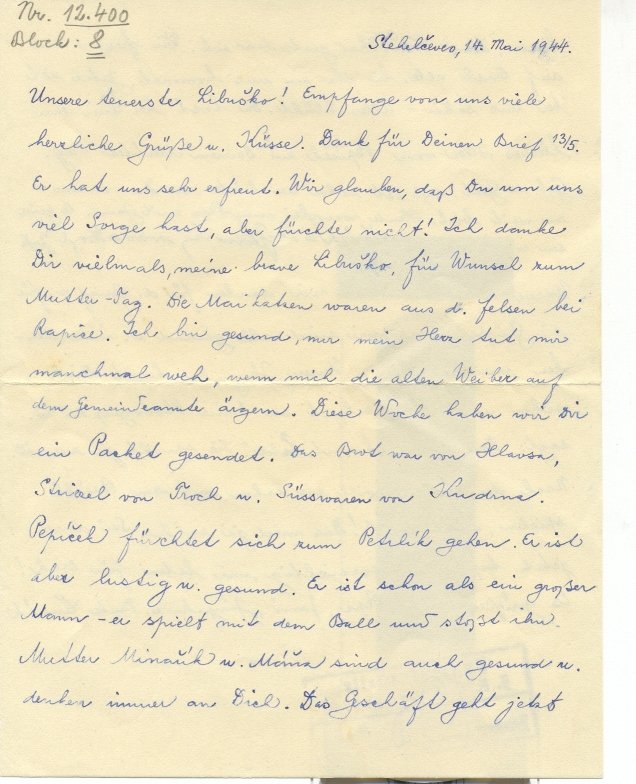 Nr. 12.400
Block: 8
Stehelčeves, 14. Mai 1944.
Unsere teuerste Libuško! Empfange von uns viele
herzliche Grüße u. Küsse. Dank für Deinen Brief 13/5.
Er hat uns sehr erfreut. Wir glauben, daß Du um uns
viel Sorge hast, aber fürchte nicht! Ich danke
Dir vielmals, meine brave Libuško, für Wunsch zum
Mutter-Tag. Die Maikatzen waren aus d. Felsen bei
Rapice. Ich bin gesund, nur mein Herz tut mir
manchmal weh, wenn mich die alten Weiber auf
dem Gemeindeamte ärgern. Diese Woche haben wir Dir
ein Packet gesendet. Das Brot war von Hlavsa,
Striezel von Troch u. Süsswaren von Kudrna.
Pepíček fürchtet sich zum Petrlík gehen. Er ist
aber lustig u. gesund. Er ist schon als ein großer
Mann - er spielt mit dem Ball und stoßt ihn.
Mutter Minařík u. Máňa sind auch gesund u.
denken immer an Dich. Das Gschäft geht jetzt